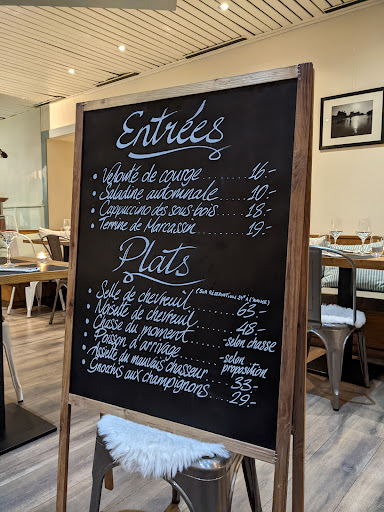 Entrées
• Velouté de courge ........ 16.-
• Saladine automnale ....... 10.-
• Cappuccino des sous-bois ..... 18.-
• Terrine de Marcassin ..... 19.-
Plats
• Selle de chevreuil 65.-
• Noisette de chevreuil 48.-
• Chasse du moment - selon chasse
• Poisson d'arrivage - selon proposition
• Assiette du mauvais chasseur 33.-
• Gnocchis aux champignons 29.-